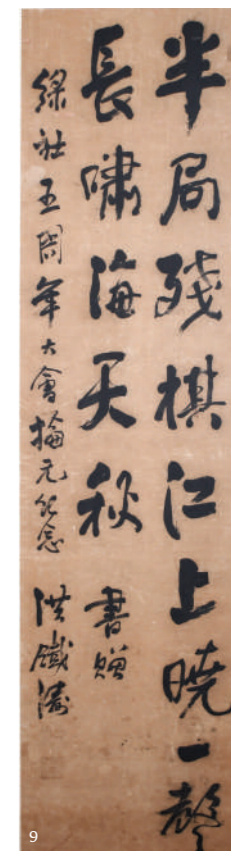 半局殘棋江上曉一聲
長嘯海天秋 書贈
綠社五周年大會掄元紀念 洪鐵濤
9